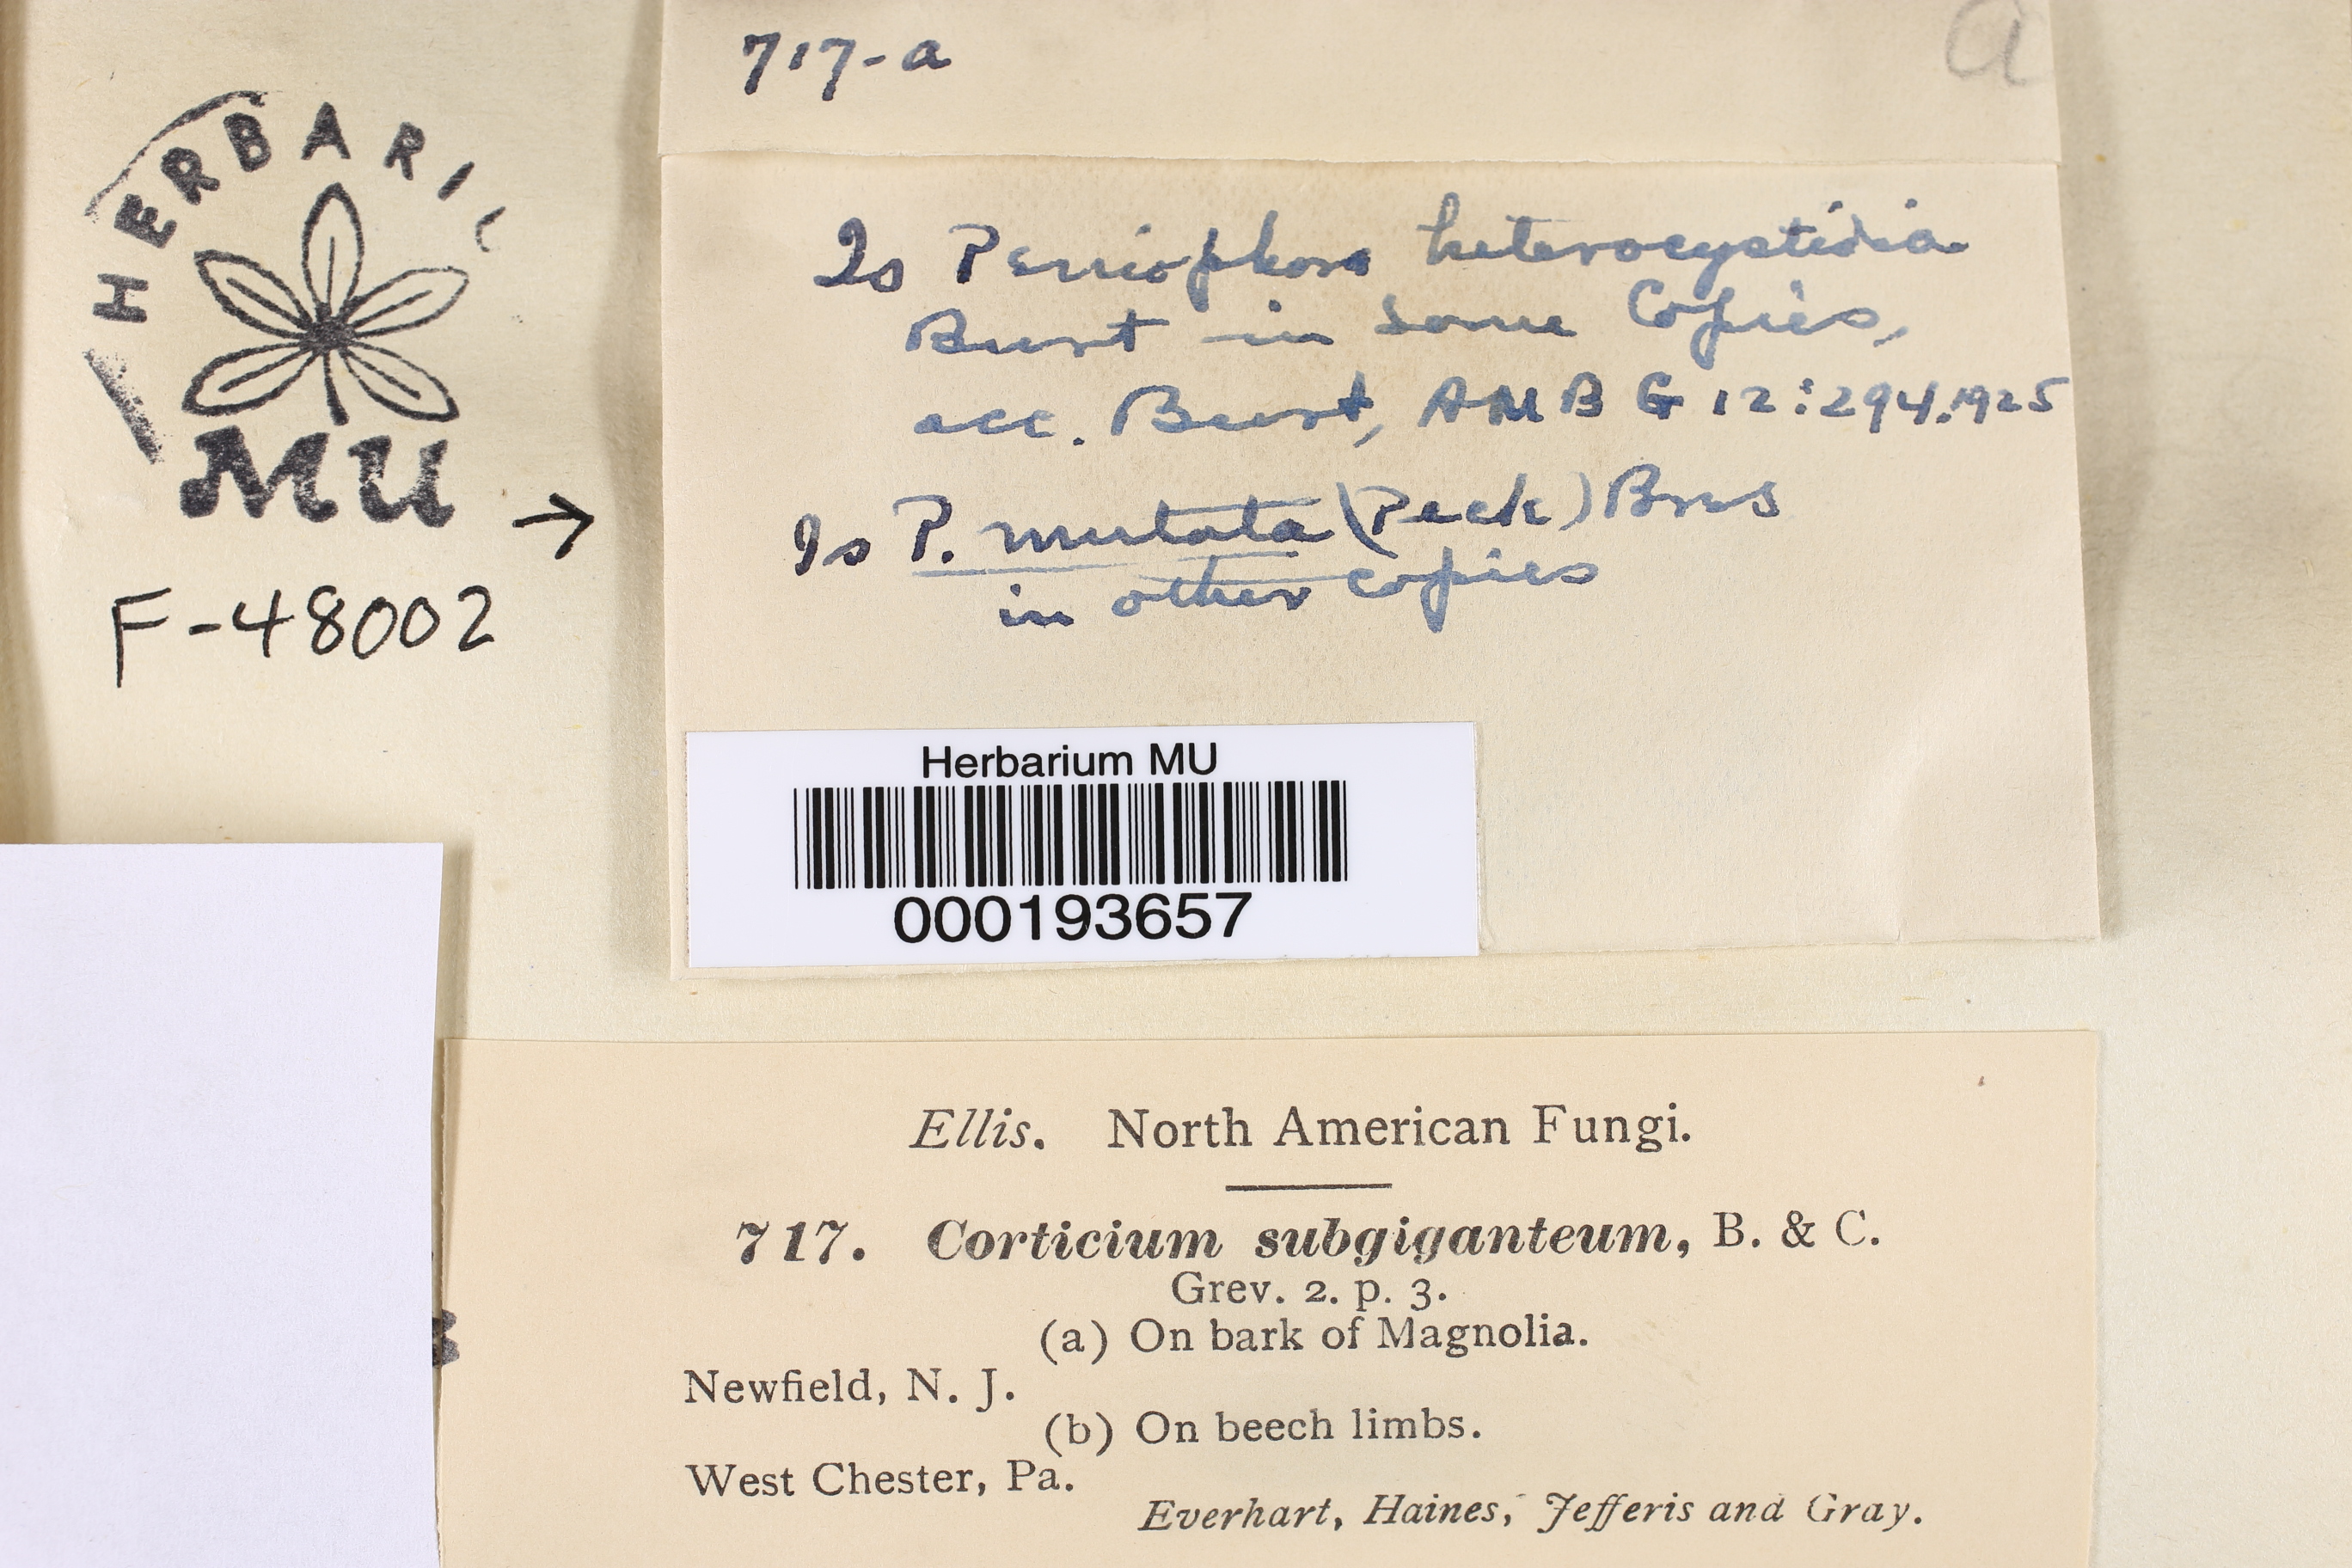 717-a
a
HERBARIU
MU
F-48002
Is Peniophora heterocystidia
Burt in some copies,
acc. Burt, AMBG 12:294.1925
Is P. mutata (Peck) Bres
in other copies
Herbarium MU
000193657
Ellis. North American Fungi.
717. Corticium subgiganteum, B. & C.
Grev. 2. p. 3.
(a) On bark of Magnolia.
Newfield, N. J.
(b) On beech limbs.
West Chester, Pa.
Everhart, Haines, Jefferis and Gray.